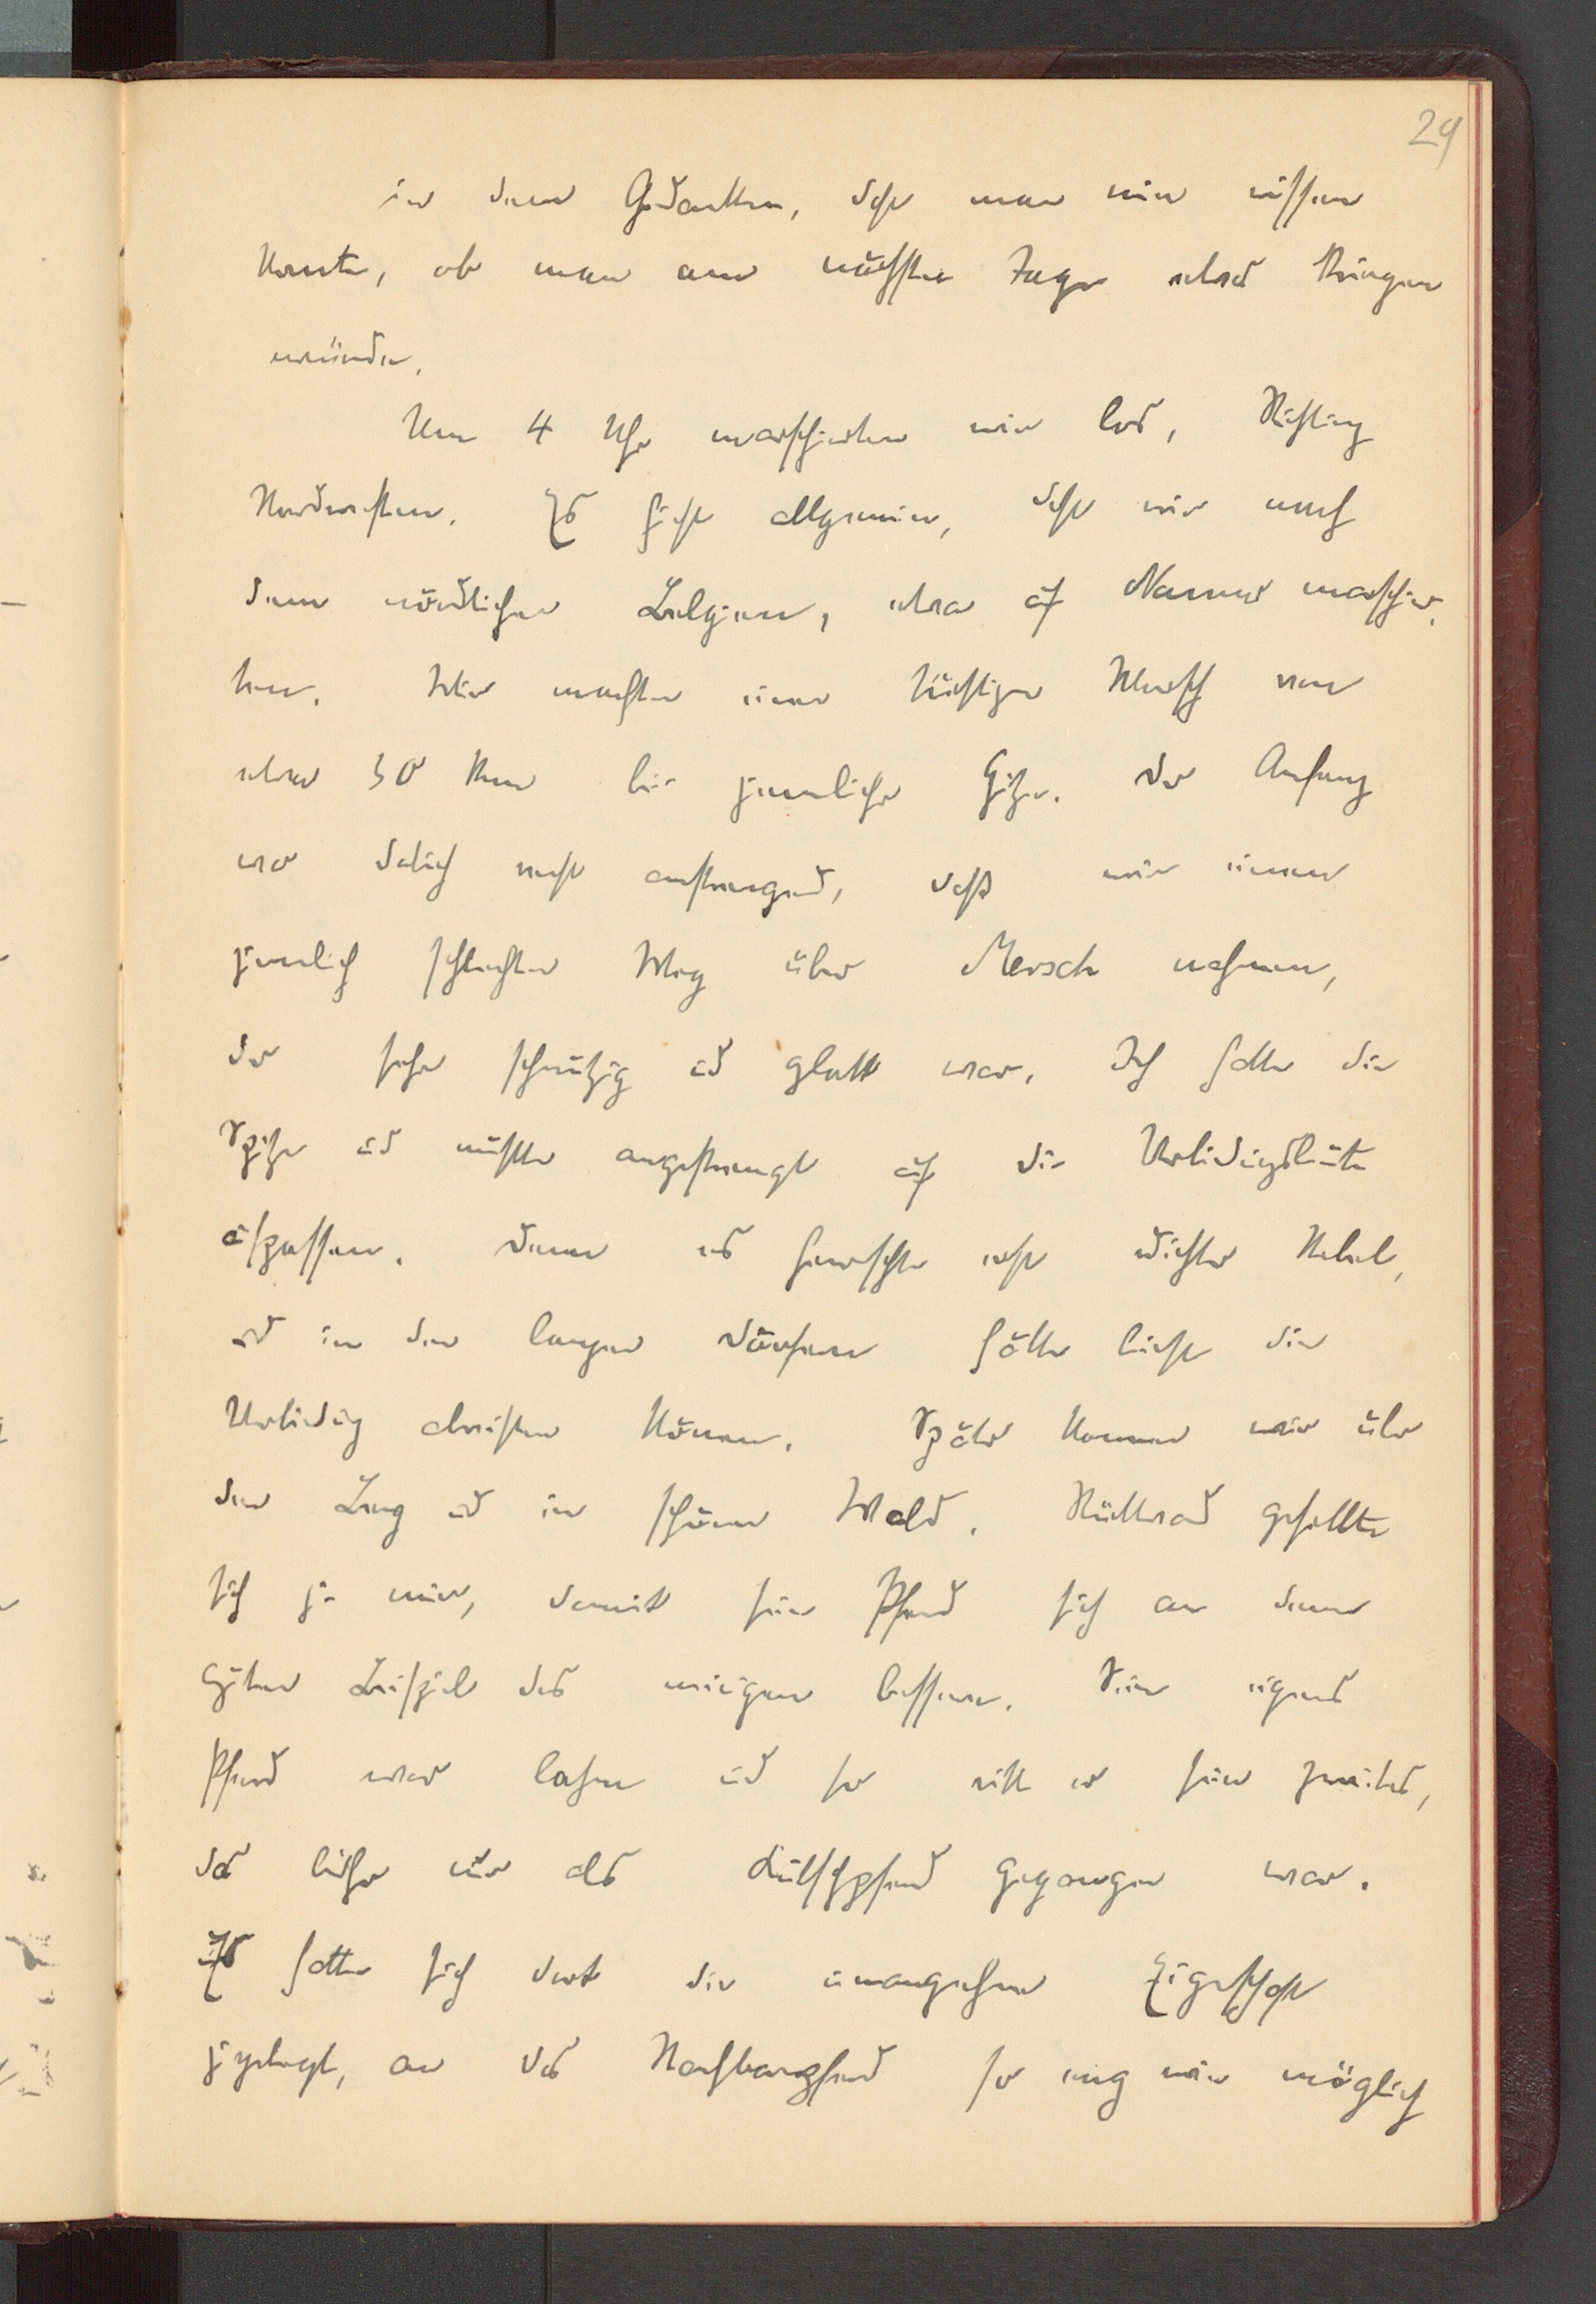 29
in dem Gedanken, daß man nie wissen
konnte, ob man am nächsten Tage etwas kriegen
würde.
Um 4 Uhr marschierten wir los, Richtung
Nordwesten. Es hieß allgemein, daß wir nach
dem nördlichen Belgien, etwa auf Namur marschier-
ten. Wir machten einen tüchtigen Marsch von
etwa 50 km bei ziemlicher Hitze. Der Anfang
war dadurch recht anstrengend, daß wir einen
ziemlich schlechten Weg über Mersch nahmen,
der sehr schmutzig und glatt war. Ich hatte die
Spitze und mußte angestrengt auf die Verbindungsleute
aufpassen. Denn es herrschte erst dichter Nebel,
und in den langen Dörfern hätte leicht die
Verbindung abreißen können. Später kamen wir über
den Berg und in schönen Wald. gesellte
sich zu mir, damit sein Pferd sich an dem
guten Beispiel des meinigen bessere. Sein eigenes
Pferd war lahm und so ritt er sein zweites,
das bisher nur als gegangen war.
Es hatte sich dort die unangenehme Eigenschaft
zugelegt, an das Nachbarpferd so eng wie möglich